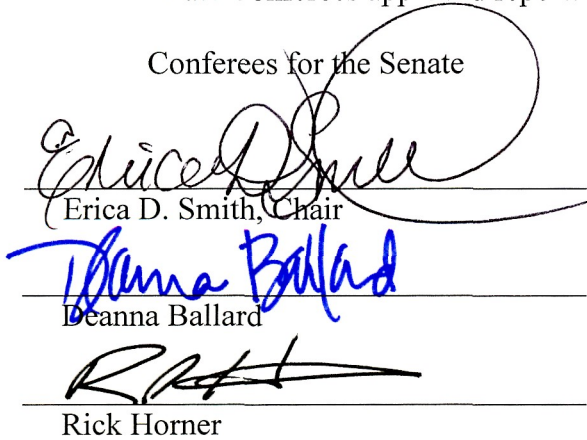 Conferees for the Senate
Erica D. Smith
Erica D. Smith, Chair
Deanna Ballard
Deanna Ballard
Rick Horner